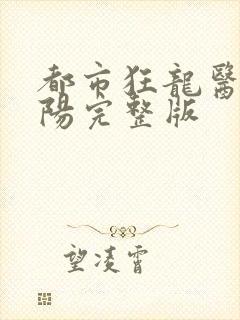 都市狂龍醫
陽完整版
望凌霄